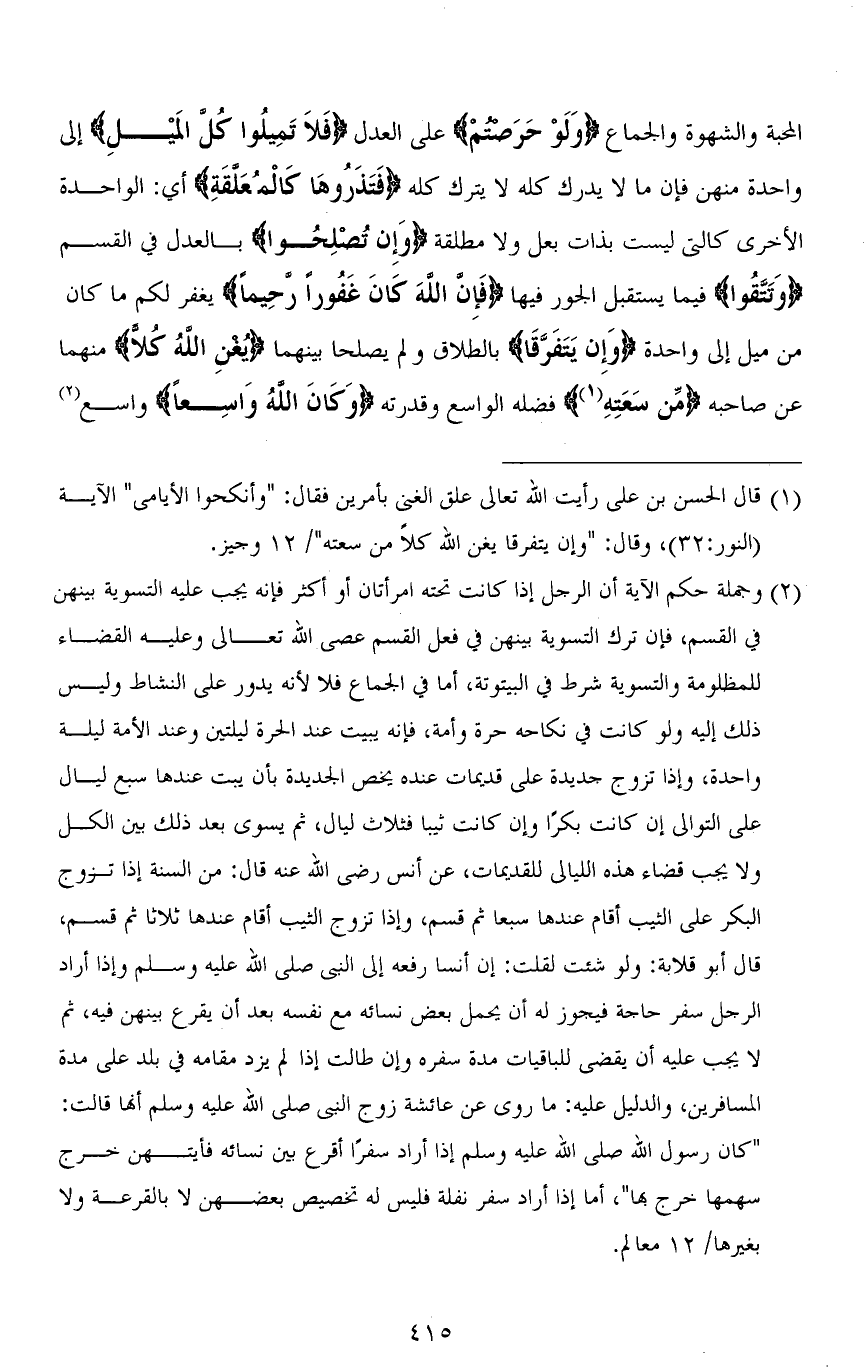 المحبة والشهوة والجماع ﴿وَلَوْ حَرَصْتُمْ﴾ على العدل ﴿فَلاَ تَمِيلُوا كُلَّ المَيْلِ﴾ إلى
واحدة منهن فإن ما لا يدرك كله لا يترك كله ﴿فَتَذَرُوهَا كَالْمُعَلَّقَةِ﴾ أي: الواحدة
الأخرى كالتي ليست بذات بعل ولا مطلقة ﴿وَإِن تُصْلِحُوا﴾ بالعدل في القسم
﴿وَتَتَّقُوا﴾ فيما يستقبل الجور فيها ﴿فَإِنَّ اللَّهَ كَانَ غَفُوراً رَّحِيماً﴾ يغفر لكم ما كان
من ميل إلى واحدة ﴿وَإِن يَتَفَرَّقَا﴾ بالطلاق و لم يصلحا بينهما ﴿يُغْنِ اللَّهُ كُلاًّ﴾ منهما
عن صاحبه ﴿مِّن سَعَتِهِ(١)﴾ فضله الواسع وقدرته ﴿وَكَانَ اللَّهُ وَاسِعاً﴾ واسع(٢)
(١) قال الحسن بن على رأيت الله تعالى علق الغنى بأمرين فقال: "وأنكحوا الأيامى" الآية
(النور:٣٢)، وقال: "وإن يتفرقا يغن الله كلاً من سعته"/ ١٢ وجيز.
(٢) وجملة حكم الآية أن الرجل إذا كانت تحته امرأتان أو أكثر فإنه يجب عليه التسوية بينهن
في القسم، فإن ترك التسوية بينهن في فعل القسم عصى الله تعالى وعليه القضاء
للمظلومة والتسوية شرط في البيتوتة، أما في الجماع فلا لأنه يدور على النشاط وليس
ذلك إليه ولو كانت في نكاحه حرة وأمة، فإنه يبيت عند الحرة ليلتين وعند الأمة ليلة
واحدة، وإذا تزوج جديدة على قديمات عنده يخص الجديدة بأن يبت عندها سبع ليال
على التوالى إن كانت بكرًا وإن كانت ثيبا فثلاث ليال، ثم يسوى بعد ذلك بين الكل
ولا يجب قضاء هذه الليالى للقديمات، عن أنس رضى الله عنه قال: من السنة إذا تزوج
البكر على الثيب أقام عندها سبعا ثم قسم، وإذا تزوج الثيب أقام عندها ثلاثا ثم قسم،
قال أبو قلابة: ولو شئت لقلت: إن أنسا رفعه إلى النبى صلى الله عليه وسلم وإذا أراد
الرجل سفر حاجة فيجوز له أن يحمل بعض نسائه مع نفسه بعد أن يقرع بينهن فيه، ثم
لا يجب عليه أن يقضى للباقيات مدة سفره وإن طالت إذا لم يزد مقامه في بلد على مدة
المسافرين، والدليل عليه: ما روى عن عائشة زوج النبى صلى الله عليه وسلم أنها قالت:
"كان رسول الله صلى الله عليه وسلم إذا أراد سفرًا أقرع بين نسائه فأيتهن خرج
سهمها خرج بها"، أما إذا أراد سفر نفلة فليس له تخصيص بعضهن لا بالقرعة ولا
بغيرها/ ١٢ معالم.
٤١٥